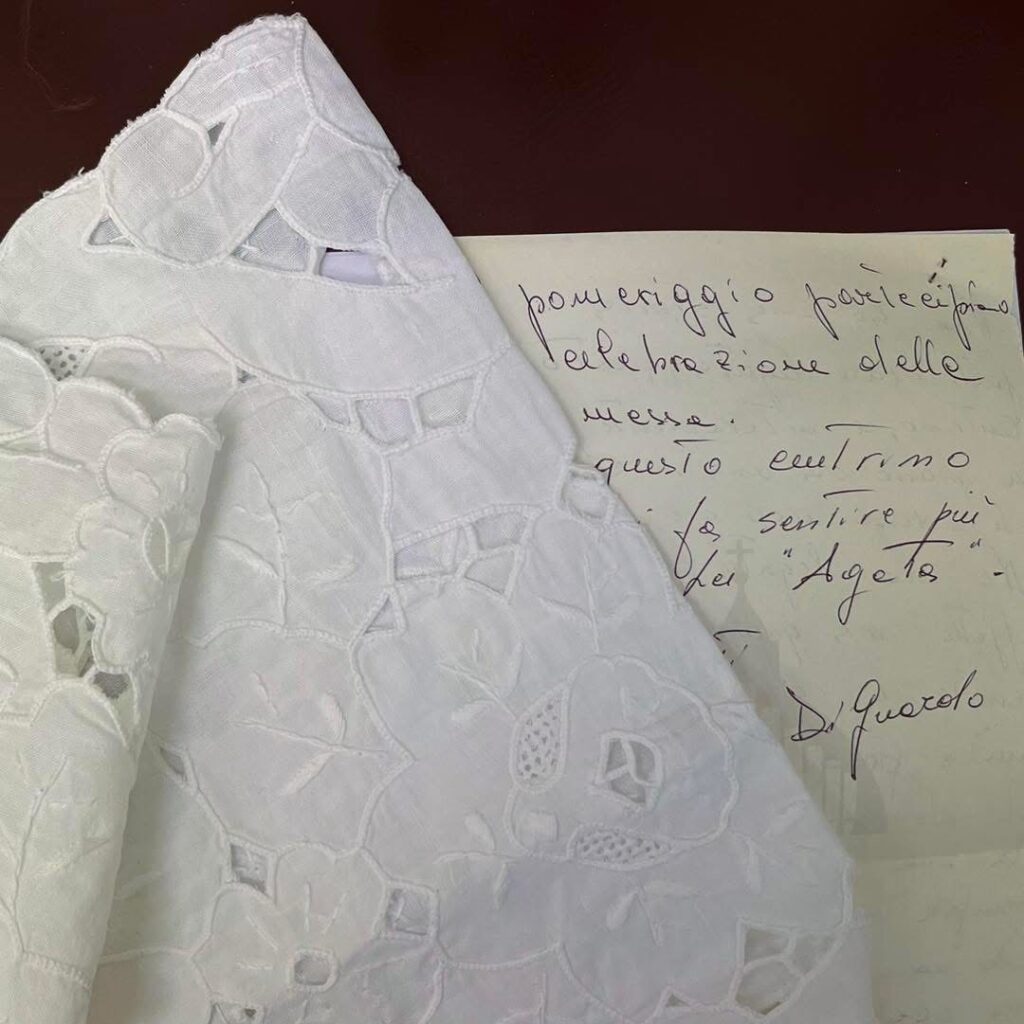 pomeriggio partecipiamo
celebrazione della
messa.
questo centrino
fa sentire più
"Agata".
Di Guardo